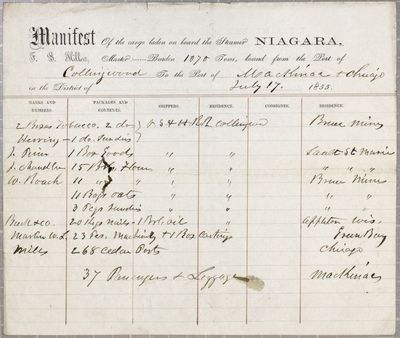 Manifest Of the cargo laden on board the Steamer NIAGARA,
F. S. Miller, Master Burden 1070 Tons, bound from the Port of
Collingwood To the Port of Mackinac & Chicago
in the District of July 17. 1855.
MARKS AND NUMBERS. PACKAGES AND CONTENTS. SHIPPERS. RESIDENCE. CONSIGNEE. RESIDENCE.
2 Boxes Tobacco 2 do O S & H R R Collingwood Bruce Mines
Herring 1 do. Sundry
J. 1 Box Goods " " Sault St Marie
J. Chandler 15 Brls Flour " " "
W. Roach 11 " " " " Bruce Mines
11 Bags oats " " "
3 Pcgs Sundries " " "
& Co. 20 Kegs Nails 1 Brl oil " Appleton Wis.
Martin W.L. 23 Pcs. Machinery & 1 Box Castings " Green Bay
Mills 268 Cedar Posts " Chicago
37 Passengers & Luggage Mackinac